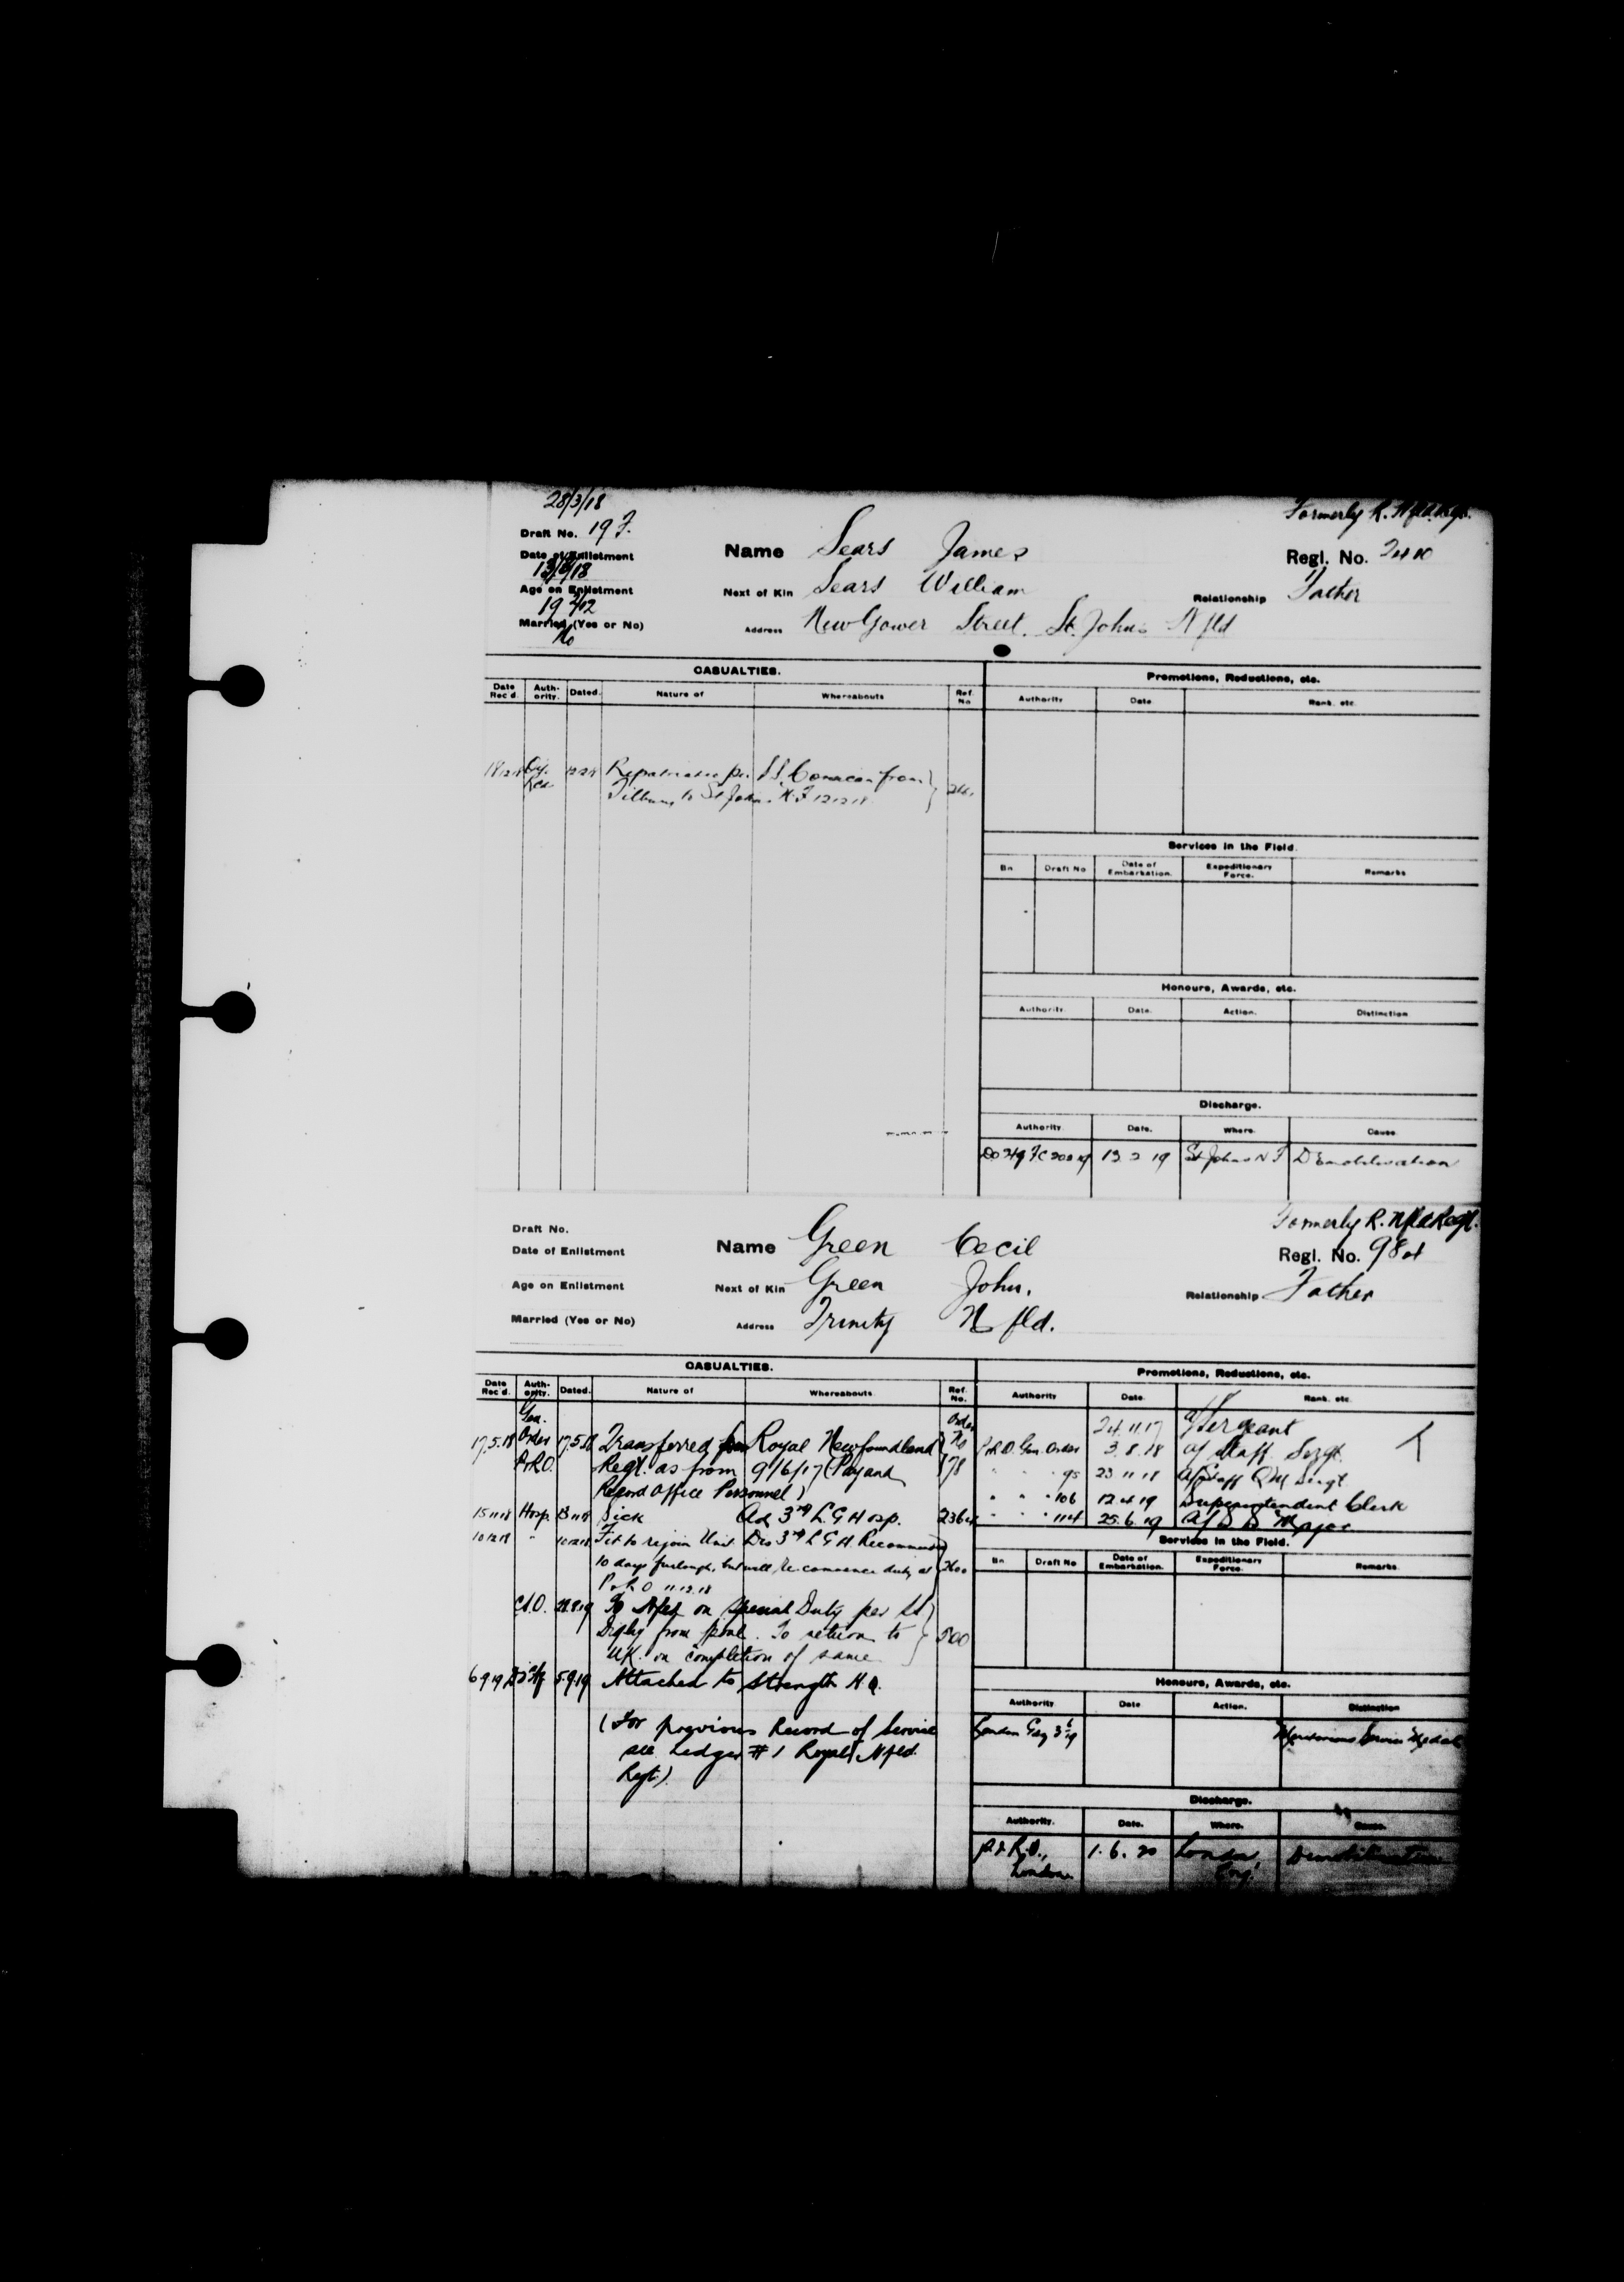 28/3/18
Formerly R. Nfld Regt.
Draft No. 19 F.
Name Sears James
Regl. No. 2410
Date of Enlistment
13/6/18
Age on Enlistment
Next of Kin Sears William
Relationship Father
19
Married (Yes or No)
Address New Gower Street. St. John's Nfld
No
CASUALTIES.
Promotions, Reductions, etc.
Date Rec'd. Auth-ority. Dated. Nature of Whereabouts Ref. No
Authority Date Rank. etc.
per S.S. from
to St John's N.F 12 12 18
Services in the Field.
Bn Draft No Date of Embarkation. Expeditionary Force. Remarks
Honours, Awards, etc.
Authority. Date. Action. Distinction
Discharge.
Authority. Date. Where. Cause.
19 St John's N F Demobilisation
Formerly R. Nfld Regt.
Draft No.
Name Green Cecil
Regl. No. 984
Date of Enlistment
Age on Enlistment
Next of Kin Green John.
Relationship Father
Married (Yes or No)
Address Trinity Nfld.
CASUALTIES.
Promotions, Reductions, etc.
Date Rec'd. Auth-ority. Dated. Nature of Whereabouts. Ref. No.
Authority Date. Rank. etc.
Gen. Order
24.11.17 a/Sergeant
17.5.18 Order 17.5.18 Transferred from Royal Newfoundland No
P&R.O. Gen. Order 3.8.18 a/ Staff Sergt.
P&R.O. Regt. as from 9/6/17 (Pay and 178
" " " 95 23 11 18 a/Staff QM Sergt.
Record Office Personnel)
" " " 106 12.4.19 Superintendent Clerk
15 11 18 Hosp. 13 11 18 Sick Ad 3rd L G Hosp. 2364
" " " 114 25.6.19 a/S S Major
10 12 18 " 10 12 18 Fit to rejoin Unit. Dis 3rd L G H Recommended
10 days furlough, but will re commence duty at 2600
P&R O 11.12.18
Services in the Field.
Bn Draft No Date of Embarkation. Expeditionary Force. Remarks.
28.8.19 To Nfld on Special Duty per SS
Digby from pool. To return to 500
UK. on completion of same
6 9 19 5.9.19 Attached to Strength H.Q.
Honours, Awards, etc.
Authority. Date Action. Distinction
London Meritorious Service Medal
(For previous Record of Service
see Ledger #1 Royal Nfld.
Regt.)
Discharge.
Authority. Date. Where. Cause.
P.&R.O., London 1.6.20 London Eng. Demobilisation